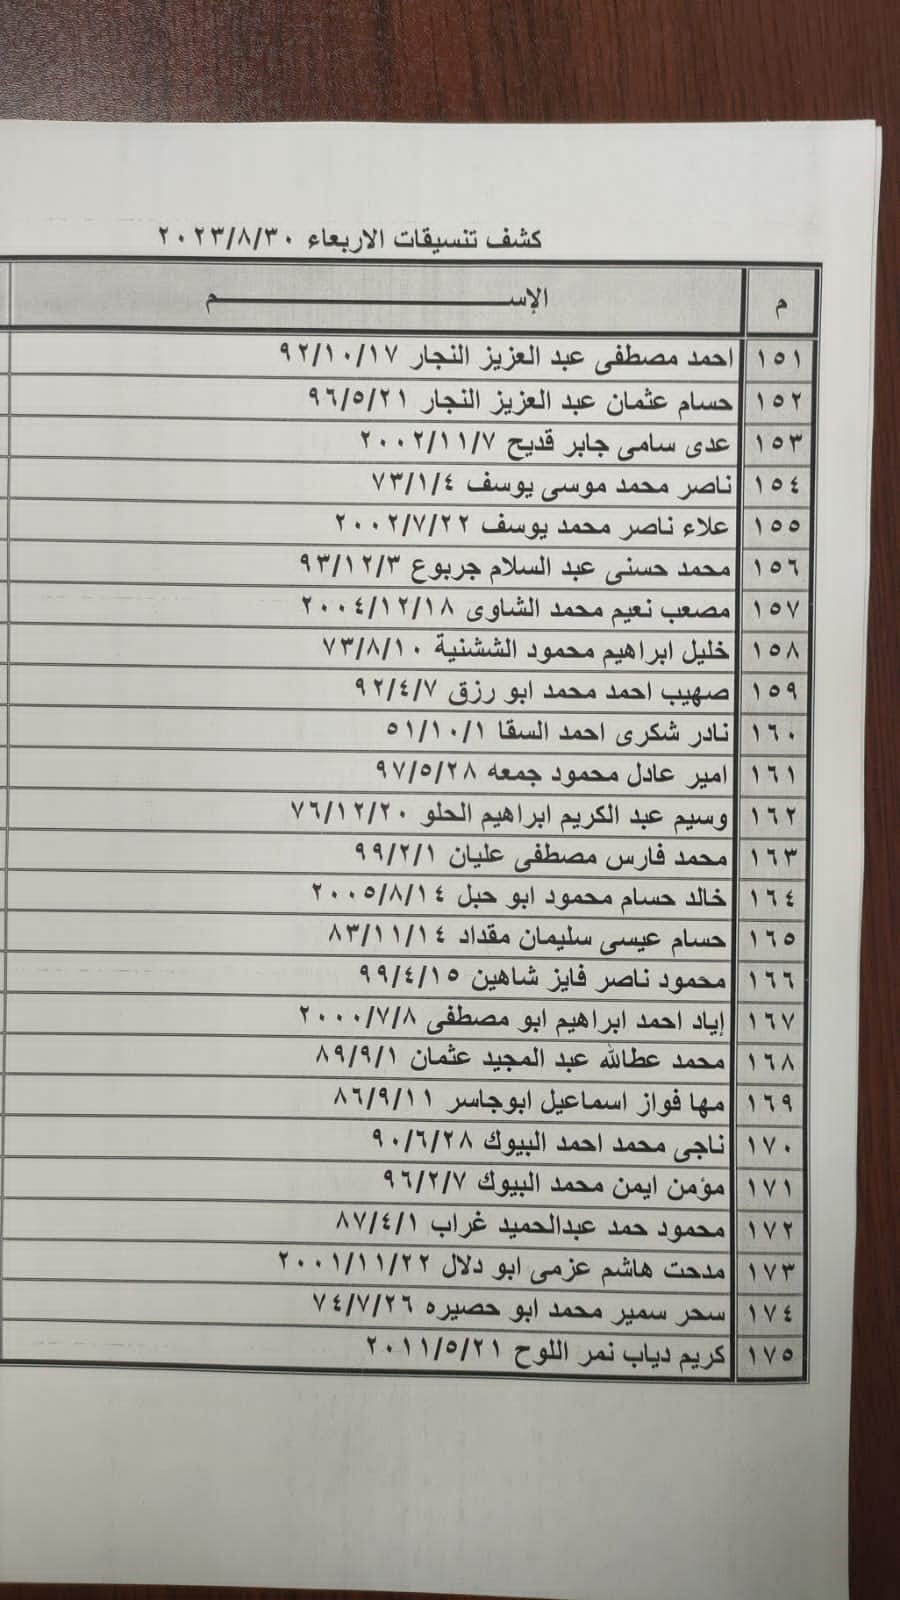 كشف تنسيقات الاربعاء ٢٠٢٣/٨/٣٠
م الإســـــــــــــــــــــم
١٥١ احمد مصطفى عبد العزيز النجار ٩٢/١٠/١٧
١٥٢ حسام عثمان عبد العزيز النجار ٩٦/٥/٢١
١٥٣ عدى سامى جابر قديح ٢٠٠٢/١١/٧
١٥٤ ناصر محمد موسى يوسف ٧٣/١/٤
١٥٥ علاء ناصر محمد يوسف ٢٠٠٢/٧/٢٢
١٥٦ محمد حسنى عبد السلام جربوع ٩٣/١٢/٣
١٥٧ مصعب نعيم محمد الشاوى ٢٠٠٤/١٢/١٨
١٥٨ خليل ابراهيم محمود الششنية ٧٣/٨/١٠
١٥٩ صهيب احمد محمد ابو رزق ٩٢/٤/٧
١٦٠ نادر شكرى احمد السقا ٥١/١٠/١
١٦١ امير عادل محمود جمعه ٩٧/٥/٢٨
١٦٢ وسيم عبد الكريم ابراهيم الحلو ٧٦/١٢/٢٠
١٦٣ محمد فارس مصطفى عليان ٩٩/٢/١
١٦٤ خالد حسام محمود ابو حبل ٢٠٠٥/٨/١٤
١٦٥ حسام عيسى سليمان مقداد ٨٣/١١/١٤
١٦٦ محمود ناصر فايز شاهين ٩٩/٤/١٥
١٦٧ إياد احمد ابراهيم ابو مصطفى ٢٠٠٠/٧/٨
١٦٨ محمد عطالله عبد المجيد عثمان ٨٩/٩/١
١٦٩ مها فواز اسماعيل ابوجاسر ٨٦/٩/١١
١٧٠ ناجى محمد احمد البيوك ٩٠/٦/٢٨
١٧١ مؤمن ايمن محمد البيوك ٩٦/٢/٧
١٧٢ محمود حمد عبدالحميد غراب ٨٧/٤/١
١٧٣ مدحت هاشم عزمى ابو دلال ٢٠٠١/١١/٢٢
١٧٤ سحر سمير محمد ابو حصيره ٧٤/٧/٢٦
١٧٥ كريم دياب نمر اللوح ٢٠١١/٥/٢١